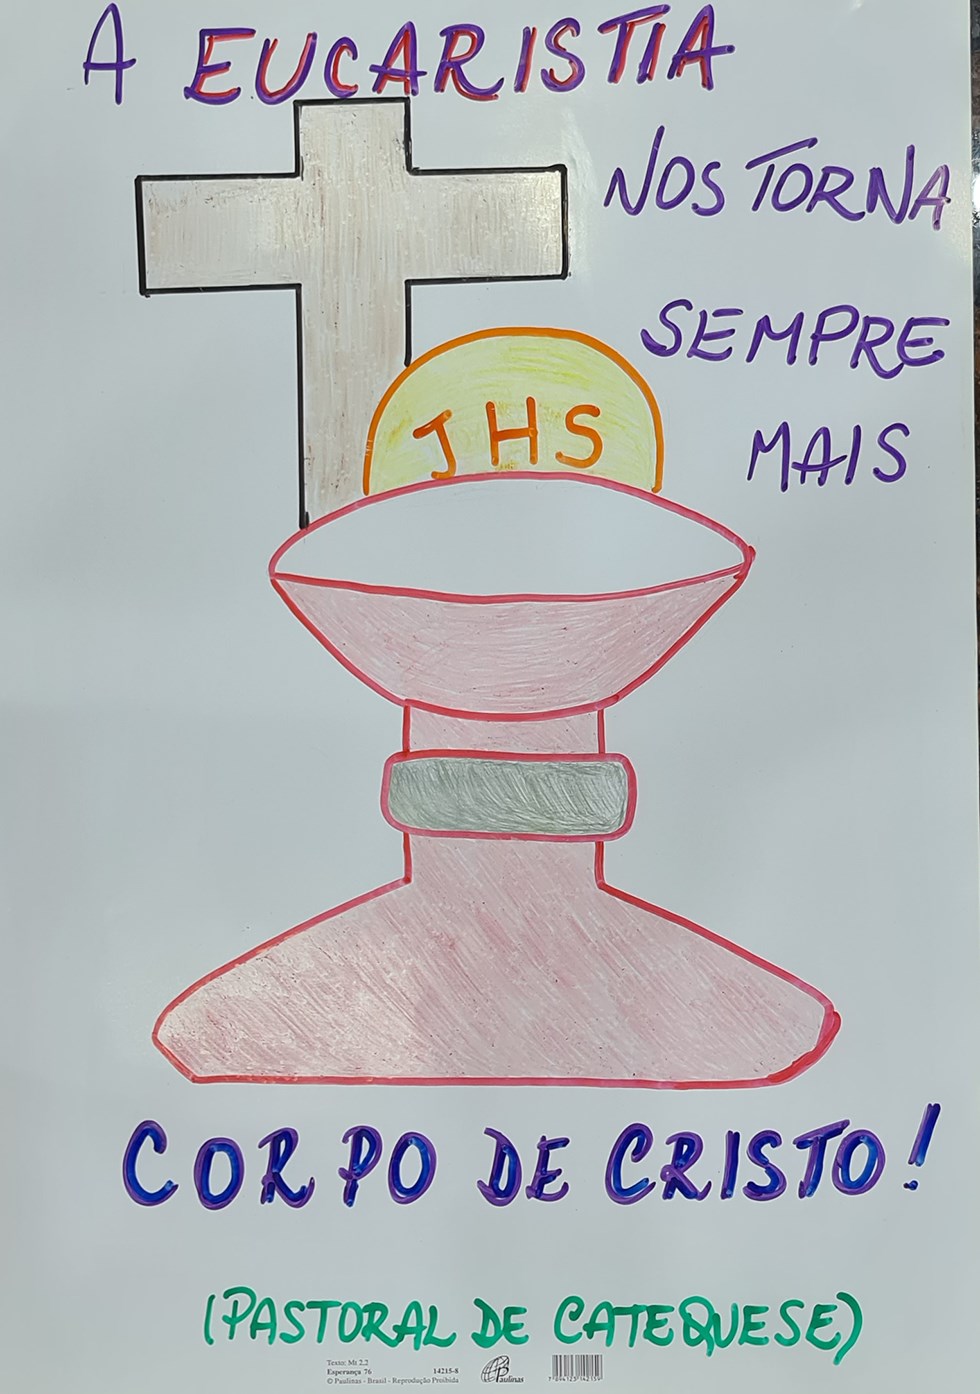 A EUCARISTIA
NOS TORNA
SEMPRE
MAIS
JHS
CORPO DE CRISTO!
(PASTORAL DE CATEQUESE)
Texto: Mt 2,2
Esperança 76 14215-8
© Paulinas - Brasil - Reprodução Proibida
Paulinas